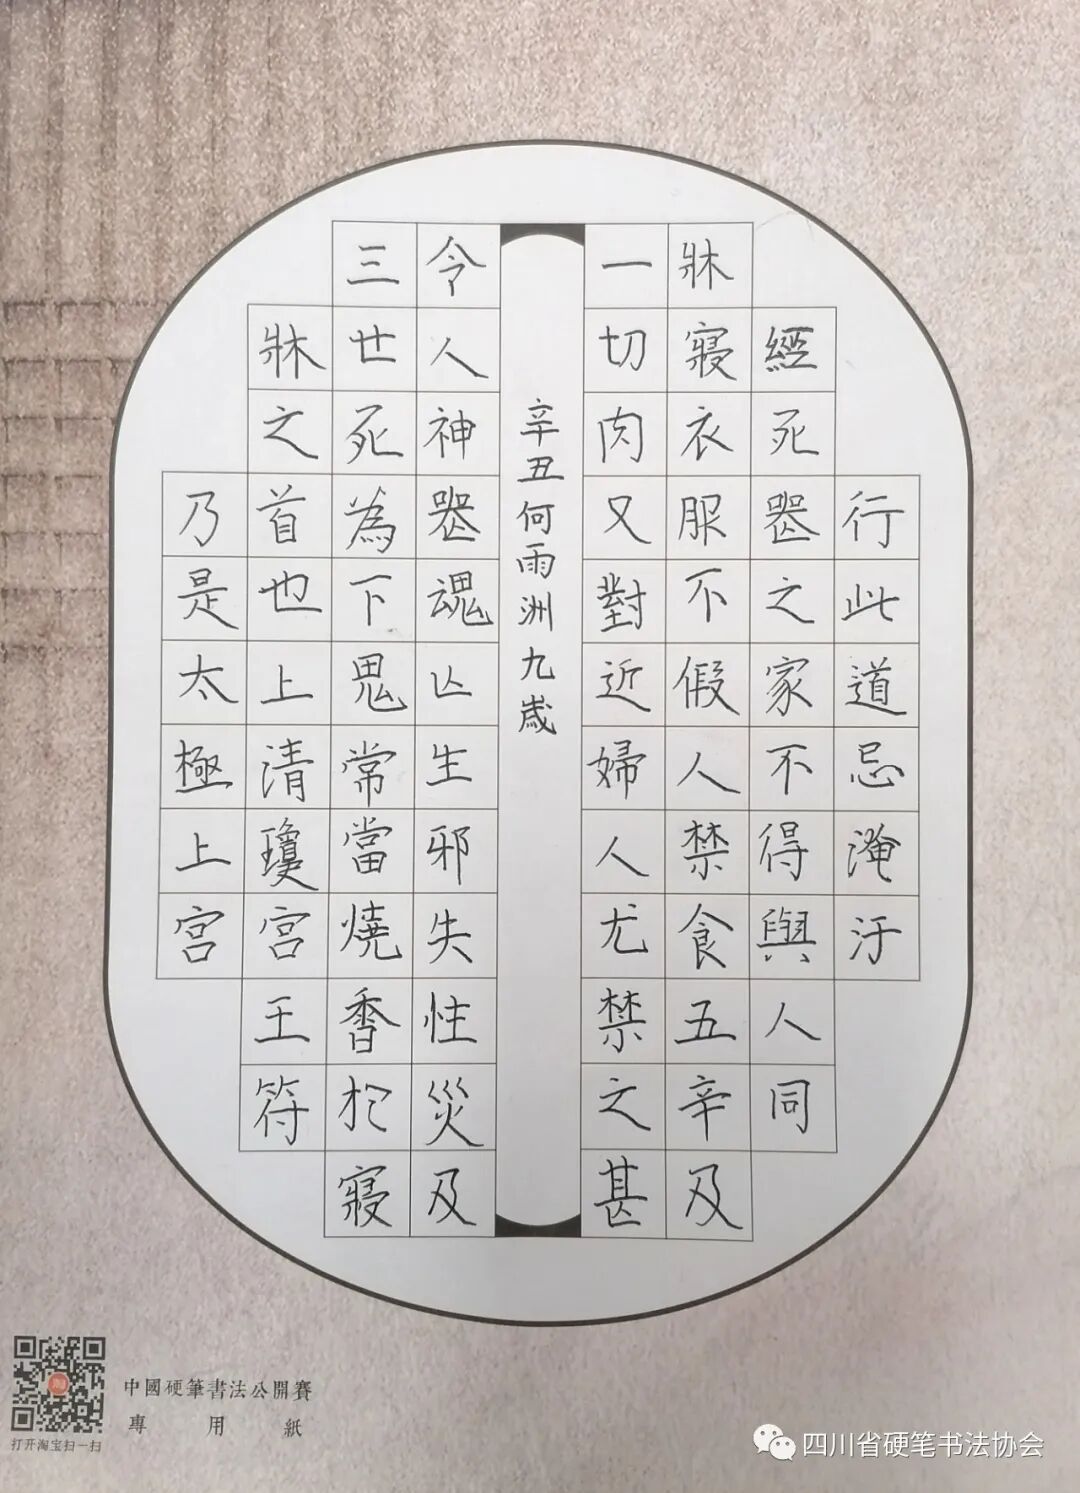 行此道忌淹汙
經死喪之家不得與人同
牀寢衣服不假人禁食五辛及
一切肉又對近婦人尤禁之甚
辛丑何雨洲九歲
令人神喪魂亡生邪失性災及
三世死為下鬼常當燒香於寢
牀之首也上清瓊宮王符
乃是太極上宮
打开淘宝扫一扫
中國硬筆書法公開賽
專用紙
四川省硬笔书法协会